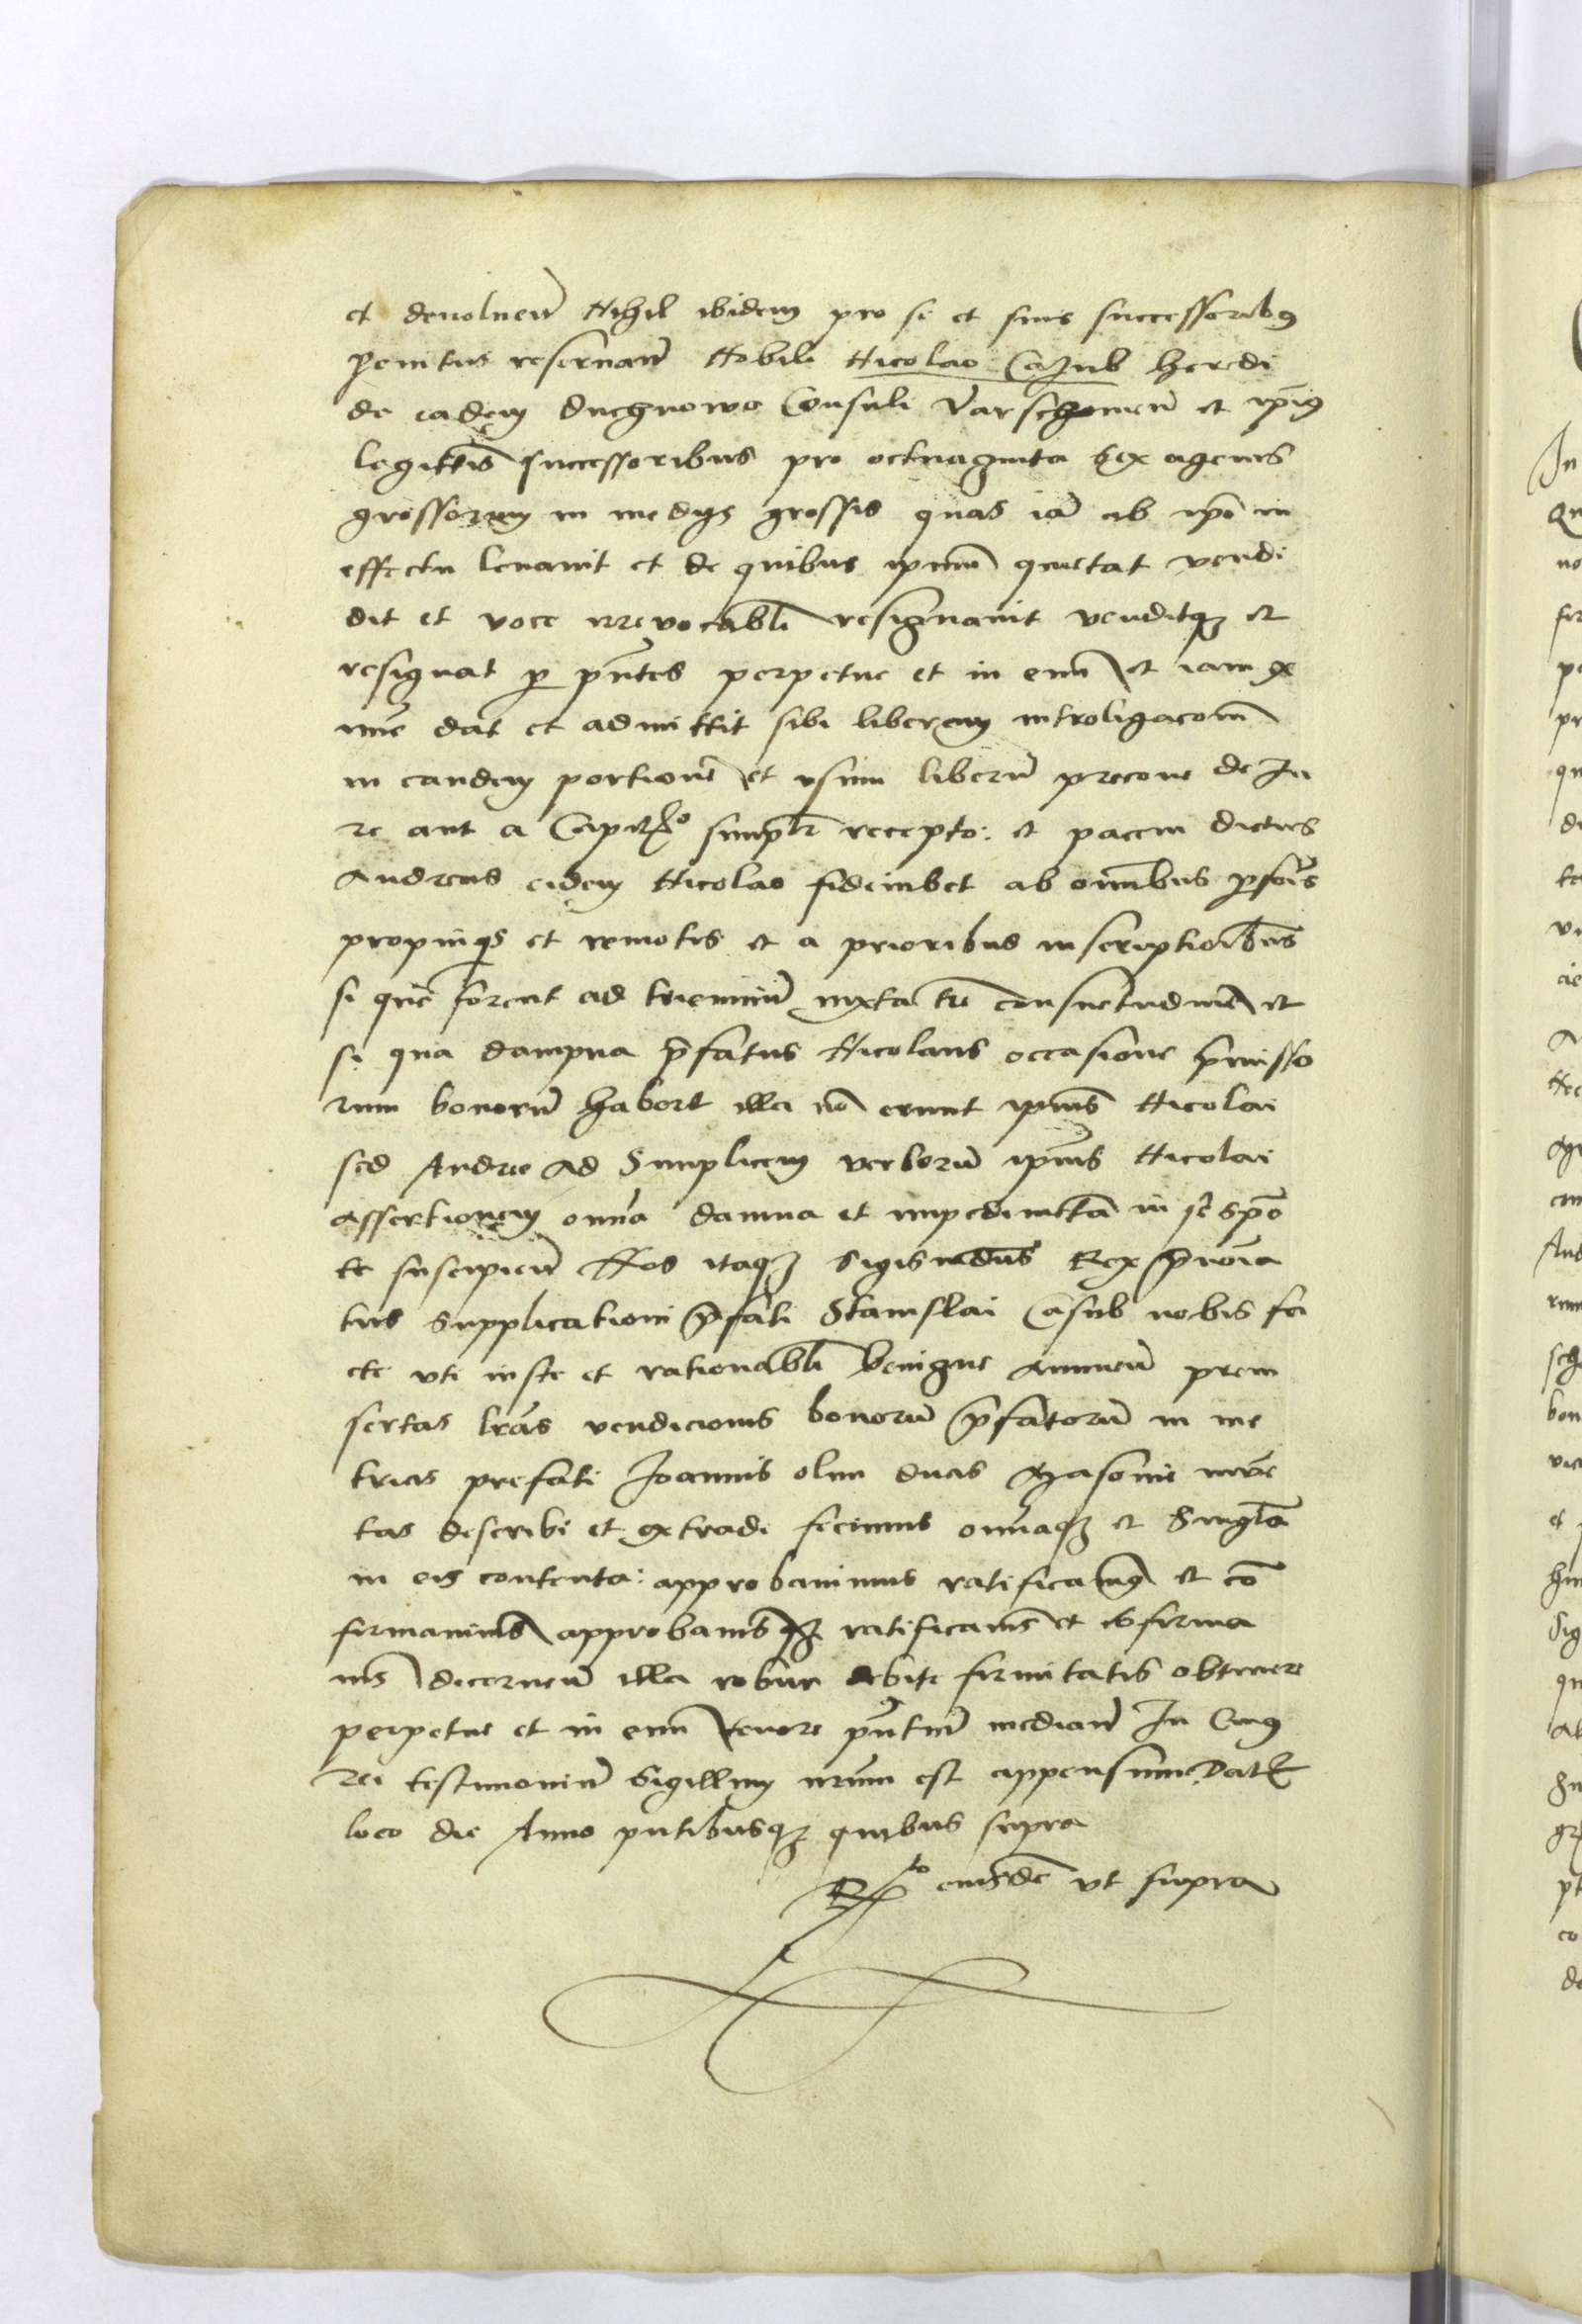 et devolueñ Nihil ibidem pro se et suis successorib9
penitus reseruañ Nobili Nicolao Cazub heredi
de eadem Duchnowo Consuli Varschouieñ et ip̃i9
legittĩs successoribus pro octuaginta sex agenis
grossorum in medys grossis quas iã ab ip̃o in
effectu leuauit et de quibus ip̃um quietat vendi
dit et voce irreuocabl̃i resignauit venditqꝫ et
resignat p̱ pñtes perpetue et in eũm et iam ex
nũc dat et admittit sibi liberam introligacõm
in eandem portionẽ et vsum liberũ precone de Iu
re aut a Capitᵒ simpl̃r recepto: et pacem dictus
Andreas eidem Nicolao fideiubet ab omĩbus p̱soĩs
propinqs et remotis et a prioribus inscriptioĩbus
si que forent ad trienniũ iuxta tr̃e consuetudinẽ et
si qua dampna p̃fatus Nicolaus occasione p̃misso
rum bonorũ haberet illa nõ erunt ip̃ius Nicolai
sed Andree ad Simplicem verborũ ip̃ius Nicolai
assertionem om̃ia damna et impedimẽta in se spõ
te suscipieñ Nos itaqꝫ Sigismũdus Rex p̃noĩa
tus supplicationi p̃fati Stanislai Casub nobis fa
cte vti iuste et rationabl̃i benigne Annueñ prein
sertas lr̃as vendicionis bonorũ p̃fatorũ in me
tricis prefati Ioannis olim ducis Mazouie inuẽ
tas describi et extradi fecimus om̃iaqꝫ et Singl̃a
in eis contenta: approbauimus ratificauim9 et cõ
firmauimus approbamusqꝫ ratificam9 et cõfirma
m9 decerneñ illa robur debite firmitatis obtinere
perpetue et in eũm tenore pñtium mediañ In Cui9
rei testimoniũ Sigillum nr̃um est appensum Dat
loco die Anno pñtibusqꝫ quibus supra
Rᵗᵒ eiusdẽ vt supra